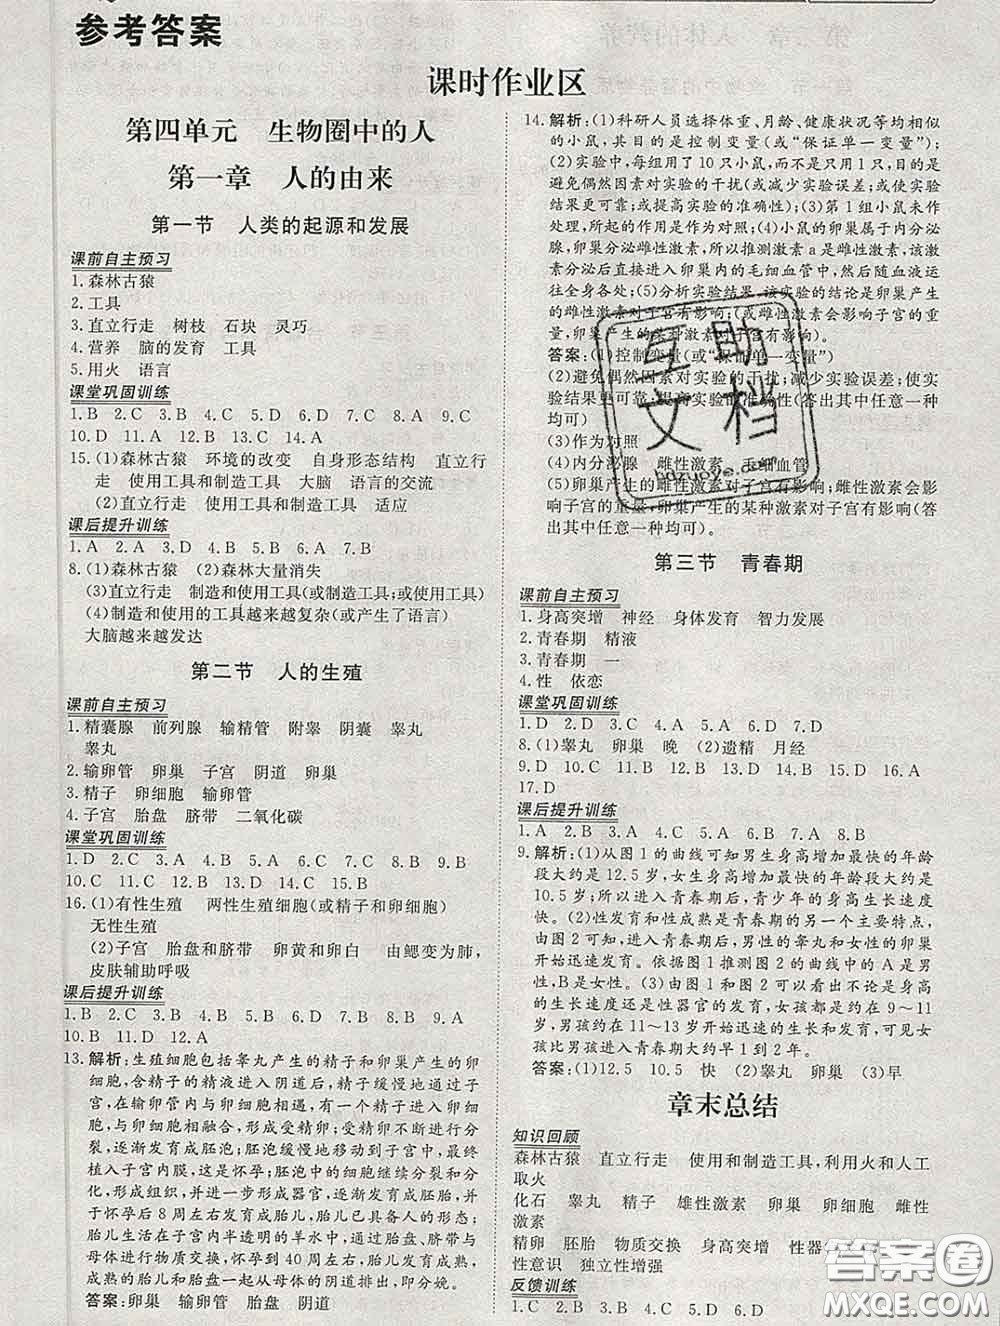 参考答案
课时作业区
第四单元 生物圈中的人
第一章 人的由来
第一节 人类的起源和发展
课前自主预习
1.森林古猿
2.工具
3.直立行走 树枝 石块 灵巧
4.营养 脑的发育 工具
5.用火 语言
课堂巩固训练
1.B 2.C 3.B 4.C 5.D 6.C 7.C 8.A 9.C
10.D 11.A 12.D 13.D 14.A
15.(1)森林古猿 环境的改变 自身形态结构 直立行
走 使用工具和制造工具 大脑 语言的交流
(2)直立行走 使用工具和制造工具 适应
课后提升训练
1.A 2.A 3.D 4.B 5.B 6.A 7.B
8.(1)森林古猿 (2)森林大量消失
(3)直立行走 制造和使用工具(或制造工具;或使用工具)
(4)制造和使用的工具越来越复杂(或产生了语言)
大脑越来越发达
第二节 人的生殖
课前自主预习
1.精囊腺 前列腺 输精管 附睾 阴囊 睾丸
睾丸
2.输卵管 卵巢 子宫 阴道 卵巢
3.精子 卵细胞 输卵管
4.子宫 胎盘 脐带 二氧化碳
课堂巩固训练
1.D 2.C 3.A 4.B 5.A 6.D 7.D 8.B 9.B
10.D 11.C 12.B 13.A 14.D 15.B
16.(1)有性生殖 两性生殖细胞(或精子和卵细胞)
无性生殖
(2)子宫 胎盘和脐带 卵黄和卵白 由鳃变为肺,
皮肤辅助呼吸
课后提升训练
1.B 2.C 3.B 4.C 5.D 6.A 7.D 8.C 9.A
10.B 11.B 12.A
13.解析:生殖细胞包括睾丸产生的精子和卵巢产生的卵
细胞,含有精子的精液进入阴道后,精子缓慢地通过子
宫,在输卵管内与卵细胞相遇,有一个精子进入卵细胞,
与卵细胞相融合,形成受精卵;受精卵不断进行分
裂,逐渐发育成胚泡;胚泡缓慢地移动到子宫中,最终
植入子宫内膜,这就是怀孕;胚泡中的细胞继续分裂和分
化,形成组织,并进一步形成器官,逐渐发育成胚胎,胚胎
怀孕后8周左右发育成胎儿,胎儿已具备人的形态;
胎儿生活在子宫内半透明的羊水中,通过胎盘、脐带与
母体进行物质交换,怀孕到40周左右,胎儿发育成熟,
成熟的胎儿和胎盘一起从母体的阴道排出,即分娩。
答案:卵巢 输卵管 胎盘 阴道
14.解析:(1)科研人员选择体重、月龄、健康状况等均相似
的小鼠,其目的是控制变量(或“保证单一变量”);
(2)实验中,每组用了10只小鼠,而不是只用1只,目的是
避免偶然因素对实验的干扰(或减少实验误差;或使实验
结果更可靠;或提高实验的准确性);(3)第1组小鼠未作
处理,所起的作用是作为对照;(4)小鼠的卵巢属于内分泌
腺,卵巢分泌雌性激素,所以推测激素a是雌性激素,该激
素分泌后直接进入卵巢内的毛细血管中,然后随血液运
往全身各处;(5)分析实验结果,该实验的结论是卵巢产生
的雌性激素对子宫有影响;(或雌性激素会影响子宫的重
量,卵巢产生的某种激素对子宫有影响)
答案:(1)控制变量(或“保证单一变量”)
(2)避免偶然因素对实验的干扰;减少实验误差;使实
验结果更可靠;提高实验的准确性(答出其中任意一种
均可)
(3)作为对照
(4)内分泌腺 雌性激素 毛细血管
(5)卵巢产生的雌性激素对子宫有影响;雌性激素会影
响子宫的重量,卵巢产生的某种激素对子宫有影响(答
出其中任意一种均可)。
第三节 青春期
课前自主预习
1.身高突增 神经 身体发育 智力发展
2.青春期 精液
3.青春期 一
4.性 依恋
课堂巩固训练
1.D 2.D 3.C 4.A 5.A 6.D 7.D
8.(1)睾丸 卵巢 晚 (2)遗精 月经
9.D 10.D 11.C 12.D 13.C 14.B 15.B 16.A
17.D
课后提升训练
1.A 2.B 3.B 4.D 5.B 6.B 7.A 8.B
9.解析:(1)从图1的曲线可知男生身高增加最快的年龄
段大约是12.5岁,女生身高增加最快的年龄段大约是
10.5岁;所以进入青春期后,青少年的身高生长速度
快。(2)性发育和性成熟是青春期的另一个主要特点,
由图2可知,进入青春期后,男性的睾丸和女性的卵巢
开始迅速发育。依据图1推测图2的曲线中的A是男
性,B是女性。(3)由图1和图2可以看出不论是身高
的生长速度还是性器官的发育,女孩都是约在9～11
岁,男孩约在11～13岁开始迅速的生长和发育,可见女
孩比男孩进入青春期大约早1到2年。
答案:(1)12.5 10.5 快 (2)睾丸 卵巢 (3)早
章末总结
知识回顾
森林古猿 直立行走 使用和制造工具,利用火和人工
取火
化石 睾丸 精子 雄性激素 卵巢 卵细胞 雌性
激素
精卵 胚胎 物质交换 身高突增 性器
性意识 独立性增强
反馈训练
1.C 2.C 3.B 4.D 5.D 6.D
互助文档
答案圈
MXQE.COM